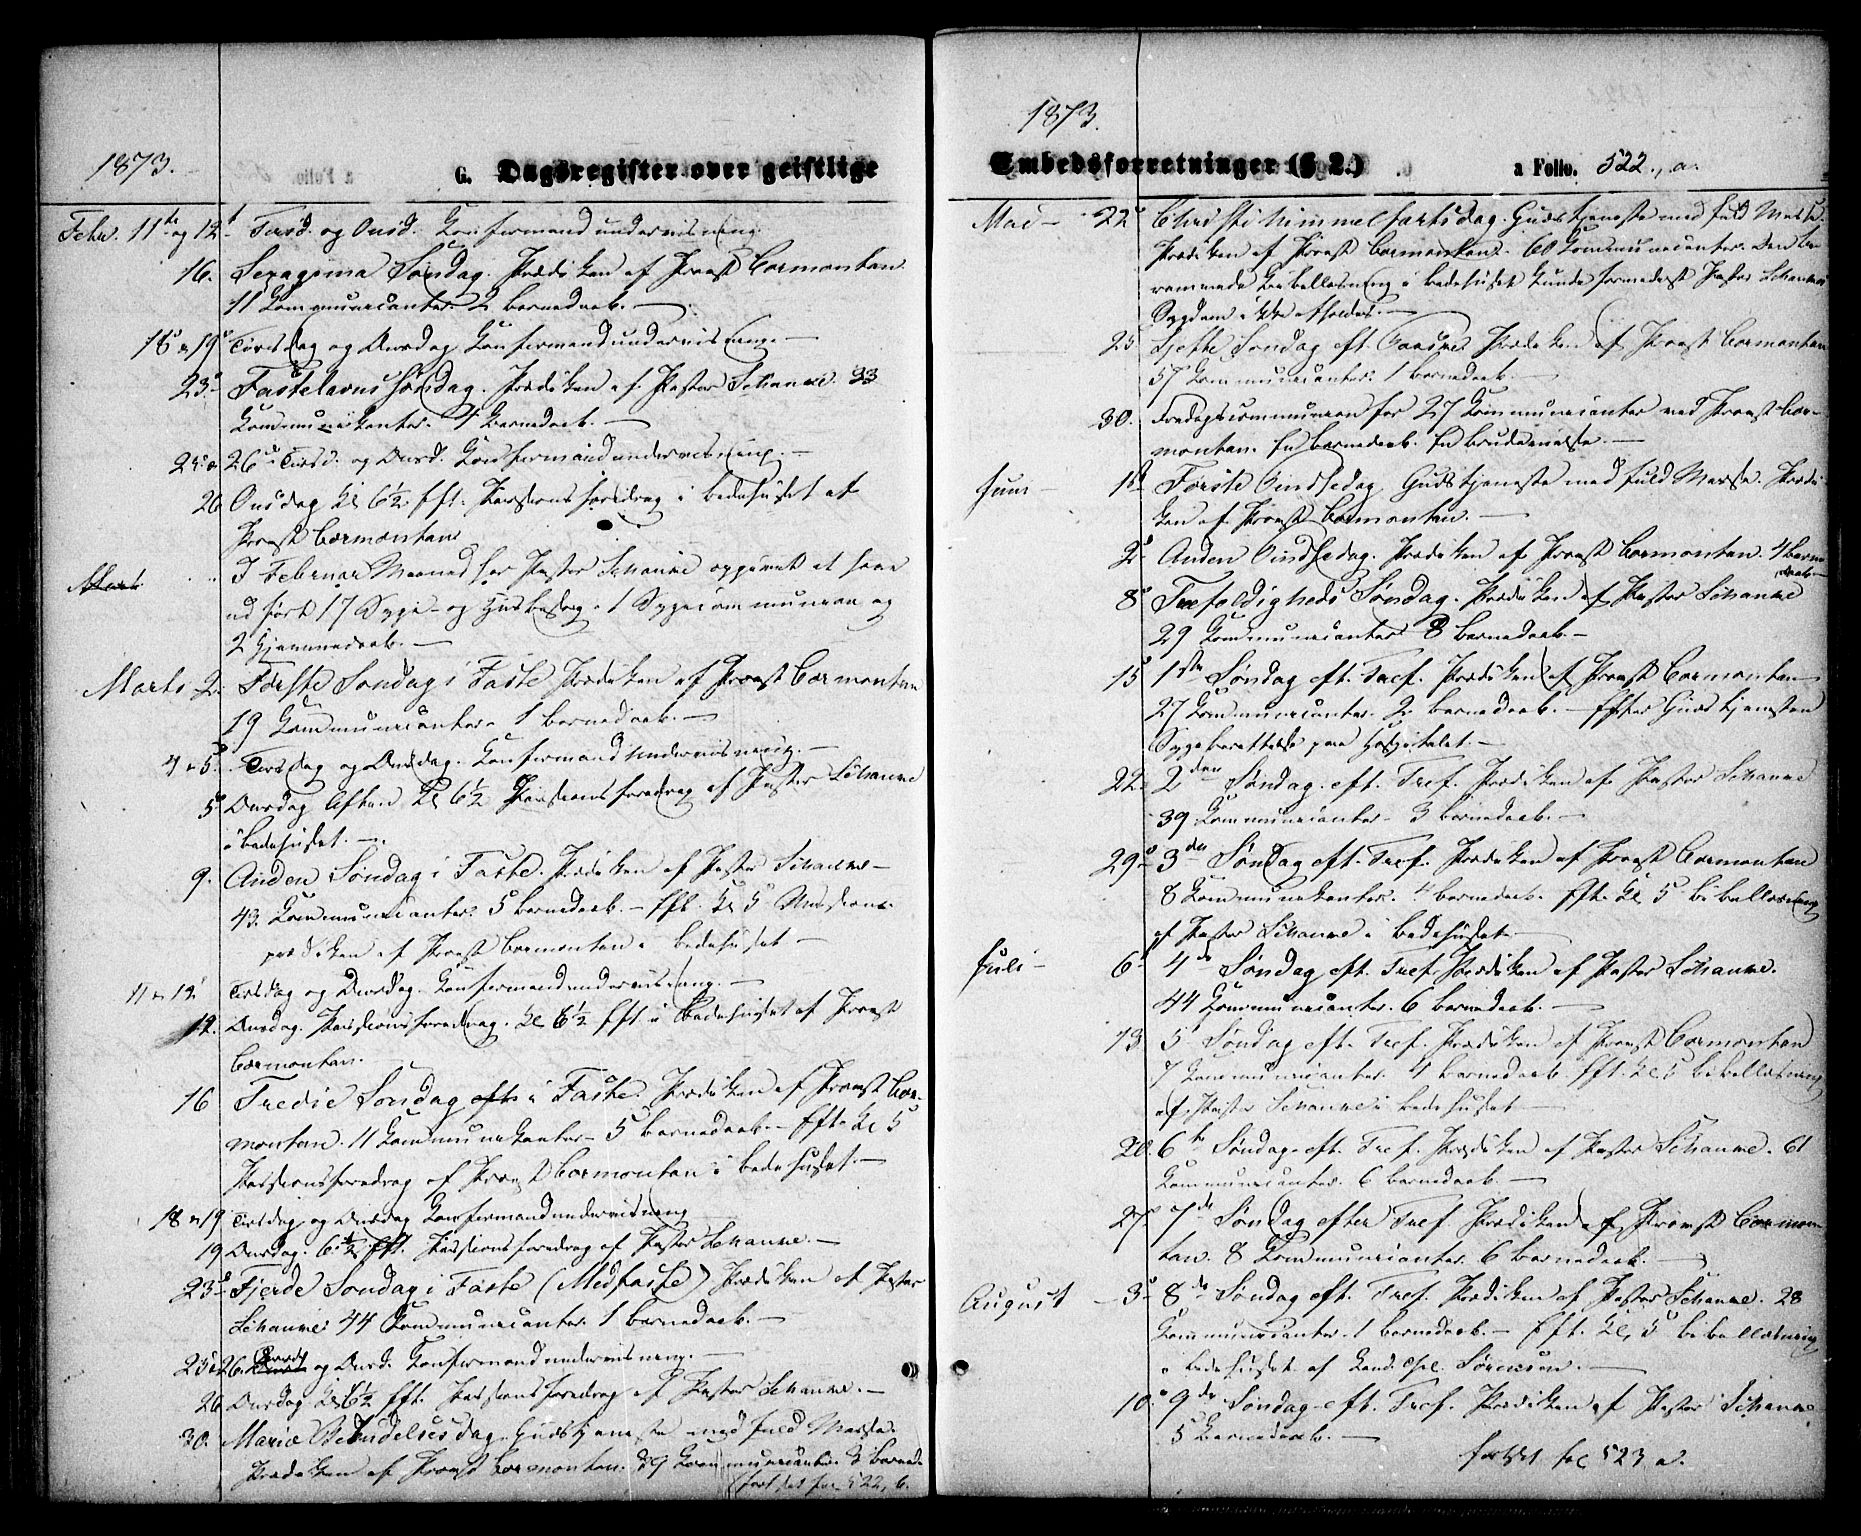 1873.
G. Dagsregister over geistlige
Febr. 11te og 12te Tirsd. og Onsd. Konfirmandundervisning.
16. Sexagesima Søndag. Prædiken af Provst Cormontan
11 Kommunicanter. 2 Barnedaab. —
18 & 19 Tirsdag og Onsdag Konfirmandundervisning. —
23 Fastelavnssøndag. Prædiken af Pastor Schanne. 33
Kommunikanter. 4 Barnedaab. —
25 & 26 Tirsd. og Onsd. Konfirmandundervisning. —
26 Onsdag Kl 6½ Eft. Passionsforedrag i Bedehuset af
Provst Cormontan
Mart
I Februar Maaned har Pastor Schanne opgivet at have
udført 17 Syge- og Husbesøg, 1 Sygecommunion og
2 Hjemmedaab. —
Marts 2. Første Søndag i Faste Prædiken af Provst Cormontan
19 Kommunicanter. 1 Barnedaab. —
4 & 5. Tirsdag og Onsdag. Konfirmandundervisning. —
5 Onsdag Aften Kl 6½ Passionsforedrag af Pastor Schanne
i Bedehuset. —
9. Anden Søndag i Faste. Prædiken af Pastor Schanne —
43. Kommunicanter. 5 Barnedaab. — Eft. Kl 5 Missions
prædiken af Provst Cormontan i Bedehuset —
11 & 12 Tirsdag og Onsdag. Konfirmandundervisning. —
12. Onsdag. Passionsforedrag. Kl 6½ Eft. i Bedehuset af Provst
Cormontan. —
16 Tredie Søndag efts i Faste. Prædiken af Provst Cor-
montan. 11 Kommunikanter — 5 Barnedaab. — Eft. Kl 5
Passionsforedrag af Provst Cormontan i Bedehuset. —
18 & 19 Tirsdag og Onsdag Konfirmandundervisning
19 Onsdag. 6½ Eft. Passionsforedrag af Pastor Schanne. —
23 Fjerde Søndag i Faste (Midfaste) Prædiken af Pastor
Schanne. 44 Kommunicanter. 1 Barnedaab. —
25 & 26. Tirsd og Onsd. Konfirmandundervisning. —
26 Onsdag Kl 6½ Eft. Passionsforedrag af Pastor Schanne. —
30. Mariæ Bebudelsesdag. Gudstjeneste med fuld Messe.
Prædiken af Provst Cormontan. 89 Kommunicanter. 3 Barned.
(forts. fol 522, b.
1873.
Embedsforretninger (§ 2.)
a Folio. 522., a.
Mai — 22 Christi Himmelfartsdag. Gudstjeneste med fuld Messe.
Prædiken af Provst Cormontan. 60 Kommunicanter. Den be-
rammede Bibellæsning i Bedehuset kunde formedelst Pastor Schannes
Sygdom ikke afholdes. —
25 Sjette Søndag eft. Paaske Prædiken af Provst Cormontan
57 Kommunicanter. 1 Barnedaab. —
30. Fredagscommunion for 27 Kommunicanter ved Provst Cor-
montan. En Barnedaab. En Brudevielse. —
Juni — 1ste Første Pindsedag Gudstjeneste med fuld Messe. Prædi-
ken af Provst Cormontan. —
2 Anden Pindsedag. Prædiken af Provst Cormontan. 4 Barne
daab —
8 Trefoldigheds Søndag. Prædiken af Pastor Schanne
29 Kommunicanter 8 Barnedaab. —
15 1ste Søndag eft. Tref. Prædiken af Provst Cormontan
27 Kommunicanter. 2 Barnedaab. — Efter Gudstjenesten
Sygeberettelse paa Hospitalet. —
22 2den Søndag. eft. Tref. Prædiken af Pastor Schanne
39 Kommunicanter — 3 Barnedaab. —
29 3die Søndag eft. Tref. Prædiken af Provst Cormontan
8 Kommunikanter. 4 Barnedaab. Eft. Kl 5 Bibellæsning
af Pastor Schanne i Bedehuset —
Juli — 6 4de Søndag eft. Tref. Prædiken af Pastor Schanne.
44 Kommunicanter. 6 Barnedaab. —
13 5 Søndag eft. Tref. Prædiken af Provst Cormontan
7 Kommunicanter. 4 Barnedaab. Eft. Kl 5 Bibellæsning
af Pastor Schanne i Bedehuset —
20. 6te Søndag. eft. Tref. Prædiken af Pastor Schanne. 61
Kommunicanter. 6 Barnedaab. —
27 7de Søndag efter Tref. Prædiken af Provst Cormon-
tan. 8 Kommunicanter. 6 Barnedaab. —
August — 3 8de Søndag eft. Tref. Prædiken af Pastor Schanne. 28
Kommunicanter. 1 Barnedaab. — Eft. Kl, 5 Bibellæsning
i Bedehuset af Cand. Sørensen. —
10. 9de Søndag. eft. Tref. Prædiken af Pastor Schanne
5 Barnedaab. —
fortst fol 523 a.